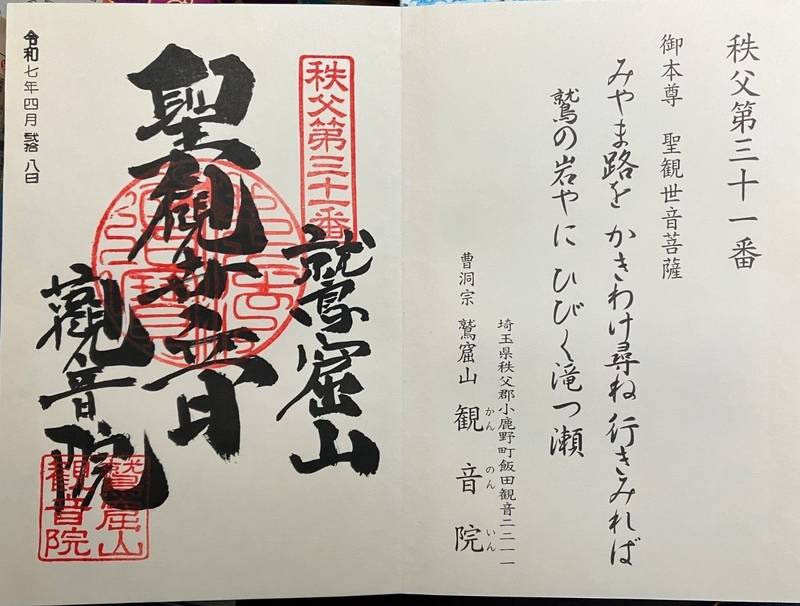 秩父第三十一番
御本尊 聖観世音菩薩
みやま路を かきわけ尋ね 行きみれば
鷲の岩やに ひびく滝つ瀬
埼玉県秩父郡小鹿野町飯田観音二二一一
曹洞宗 鷲窟山 観音院
かんのんいん
秩父第三十一番
鷲窟山
聖観世音
観音院
鷲窟山
観音院
令和七年四月 弐拾 八日